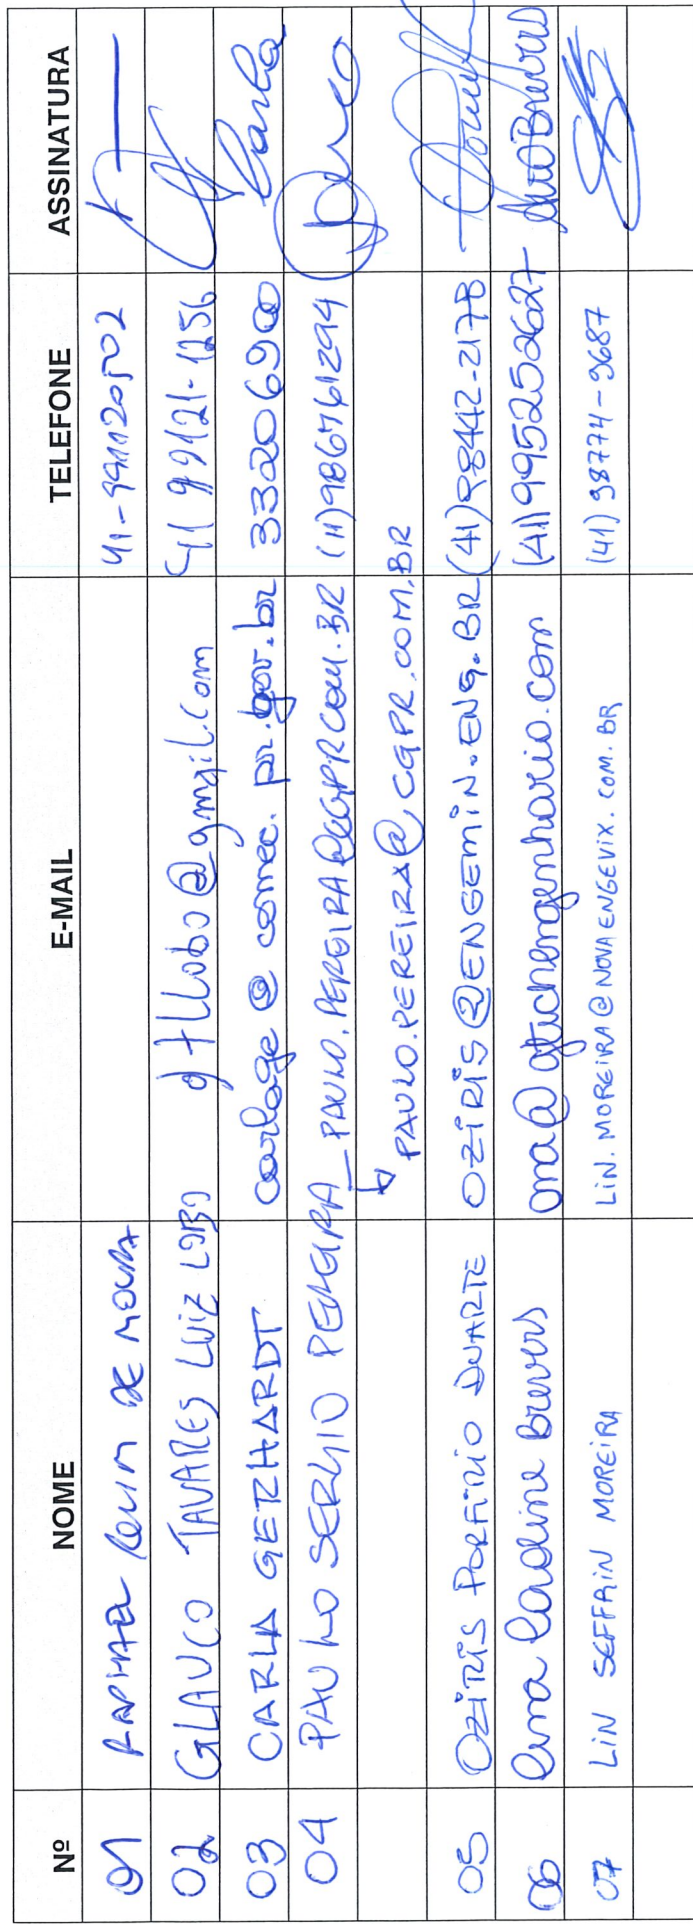 Nº NOME E-MAIL TELEFONE ASSINATURA
01 RAPHAEL ROLIM DE MOURA 41-991120502
02 GLAUCO TAVARES LUIZ LOBO gtllobo@gmail.com 41 99121-1256
03 CARLA GERHARDT carlage@comec.pr.gov.br 33206900 Carla
04 PAULO SERGIO PEREIRA PAULO.PEREIRA@CGPR.COM.BR (11)986761294
PAULO.PEREIRA@CGPR.COM.BR
05 OZIRIS PORFIRIO DUARTE OZIRIS@ENGEMIN.ENG.BR (41)98442-2178
06 Ana Caroline Brevers (41)995252627
07 LIN SEFFRIN MOREIRA LIN.MOREIRA@NOVAENGEVIX.COM.BR (41) 98774-9687